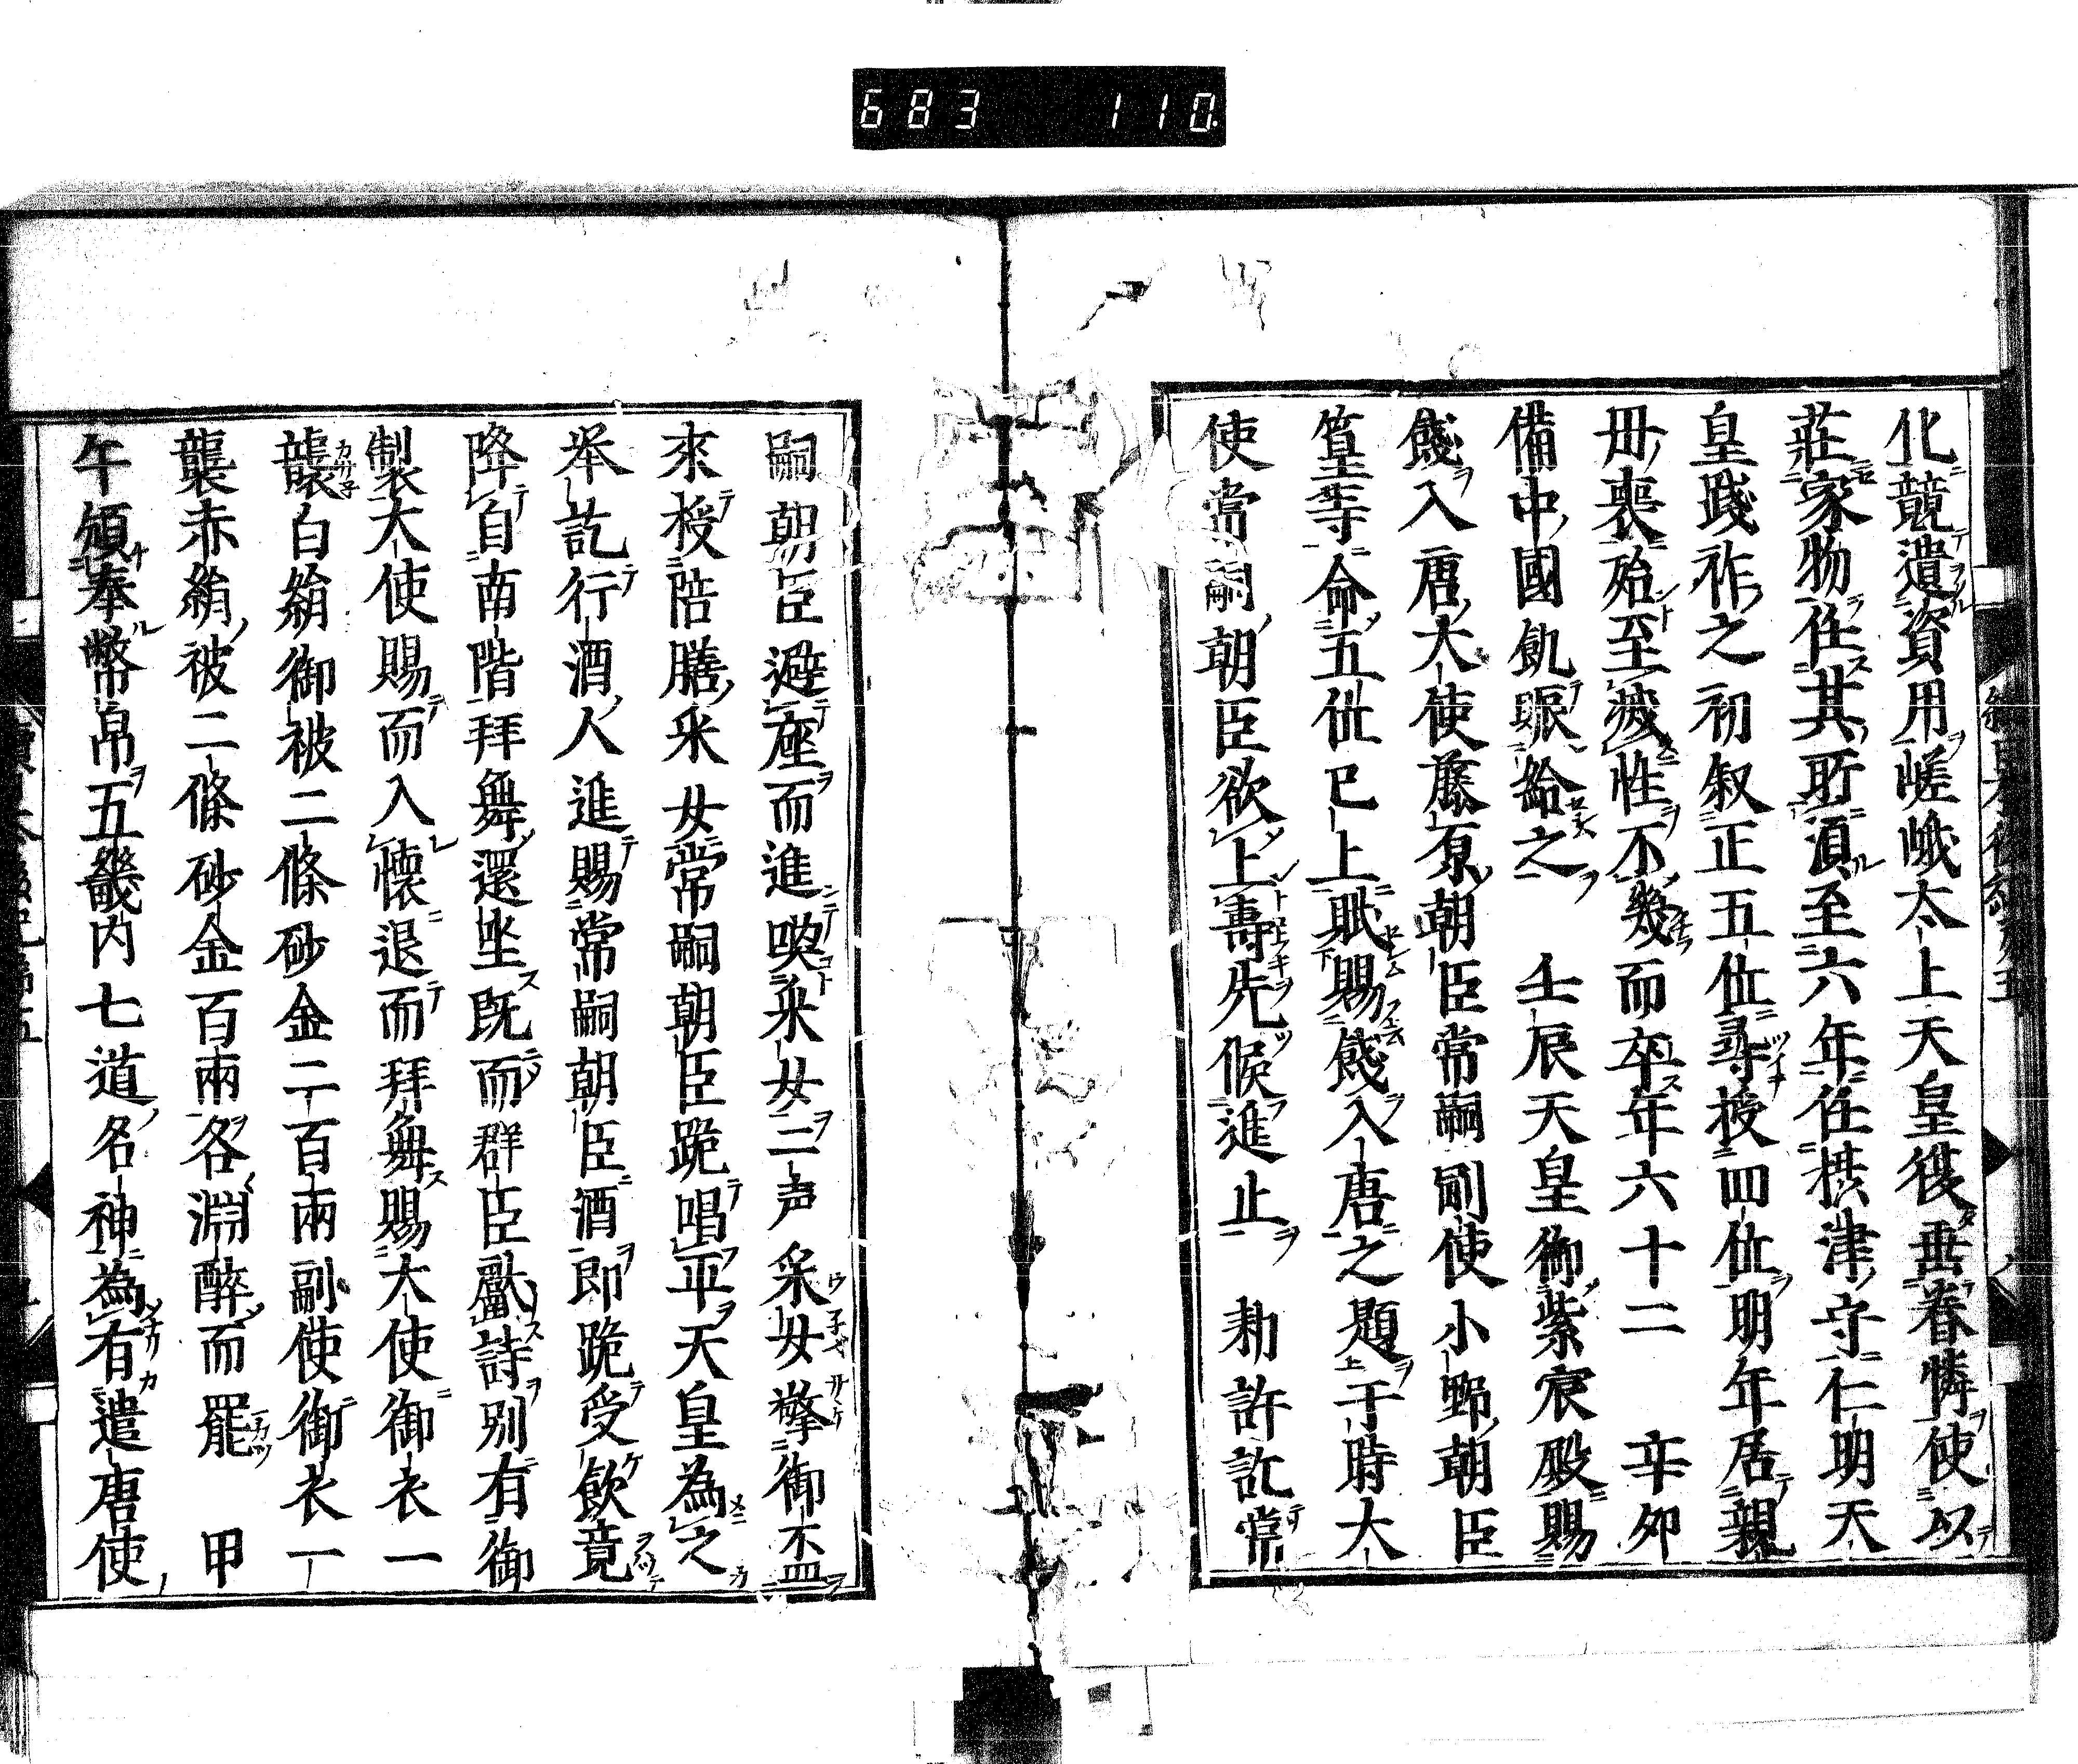 683 110
化競遣資用嵯峨太上天皇後垂眷憐使以
莊家物任其所須至六年任摂津守仁明天
皇踐祚之初叙正五位尋授四位明年居親
毋喪殆至滅性不幾而卒年六十二 辛夘
備中國飢賑給之 壬辰天皇御紫宸殿賜
餞入唐大使藤原朝臣常嗣副使小野朝臣
篁等命五位已上賦賜餞入唐之題于時大
使常嗣朝臣欲上壽先候進止 勅許訖常
嗣朝臣避座而進喚采女二声采女擎御盃
來授陪膳采女常嗣朝臣跪唱平天皇為之
举訖行酒人進賜常嗣朝臣酒即跪受飲竟
降自南階拜舞還坐既而群臣獻詩别有御
製大使賜而入懐退而拜舞賜大使御衣一
襲白絹御被二條砂金二百兩副使御衣一
襲赤絹被二條砂金百兩各淵醉而罷 甲
午頒奉幣帛五畿内七道名神為有遣唐使